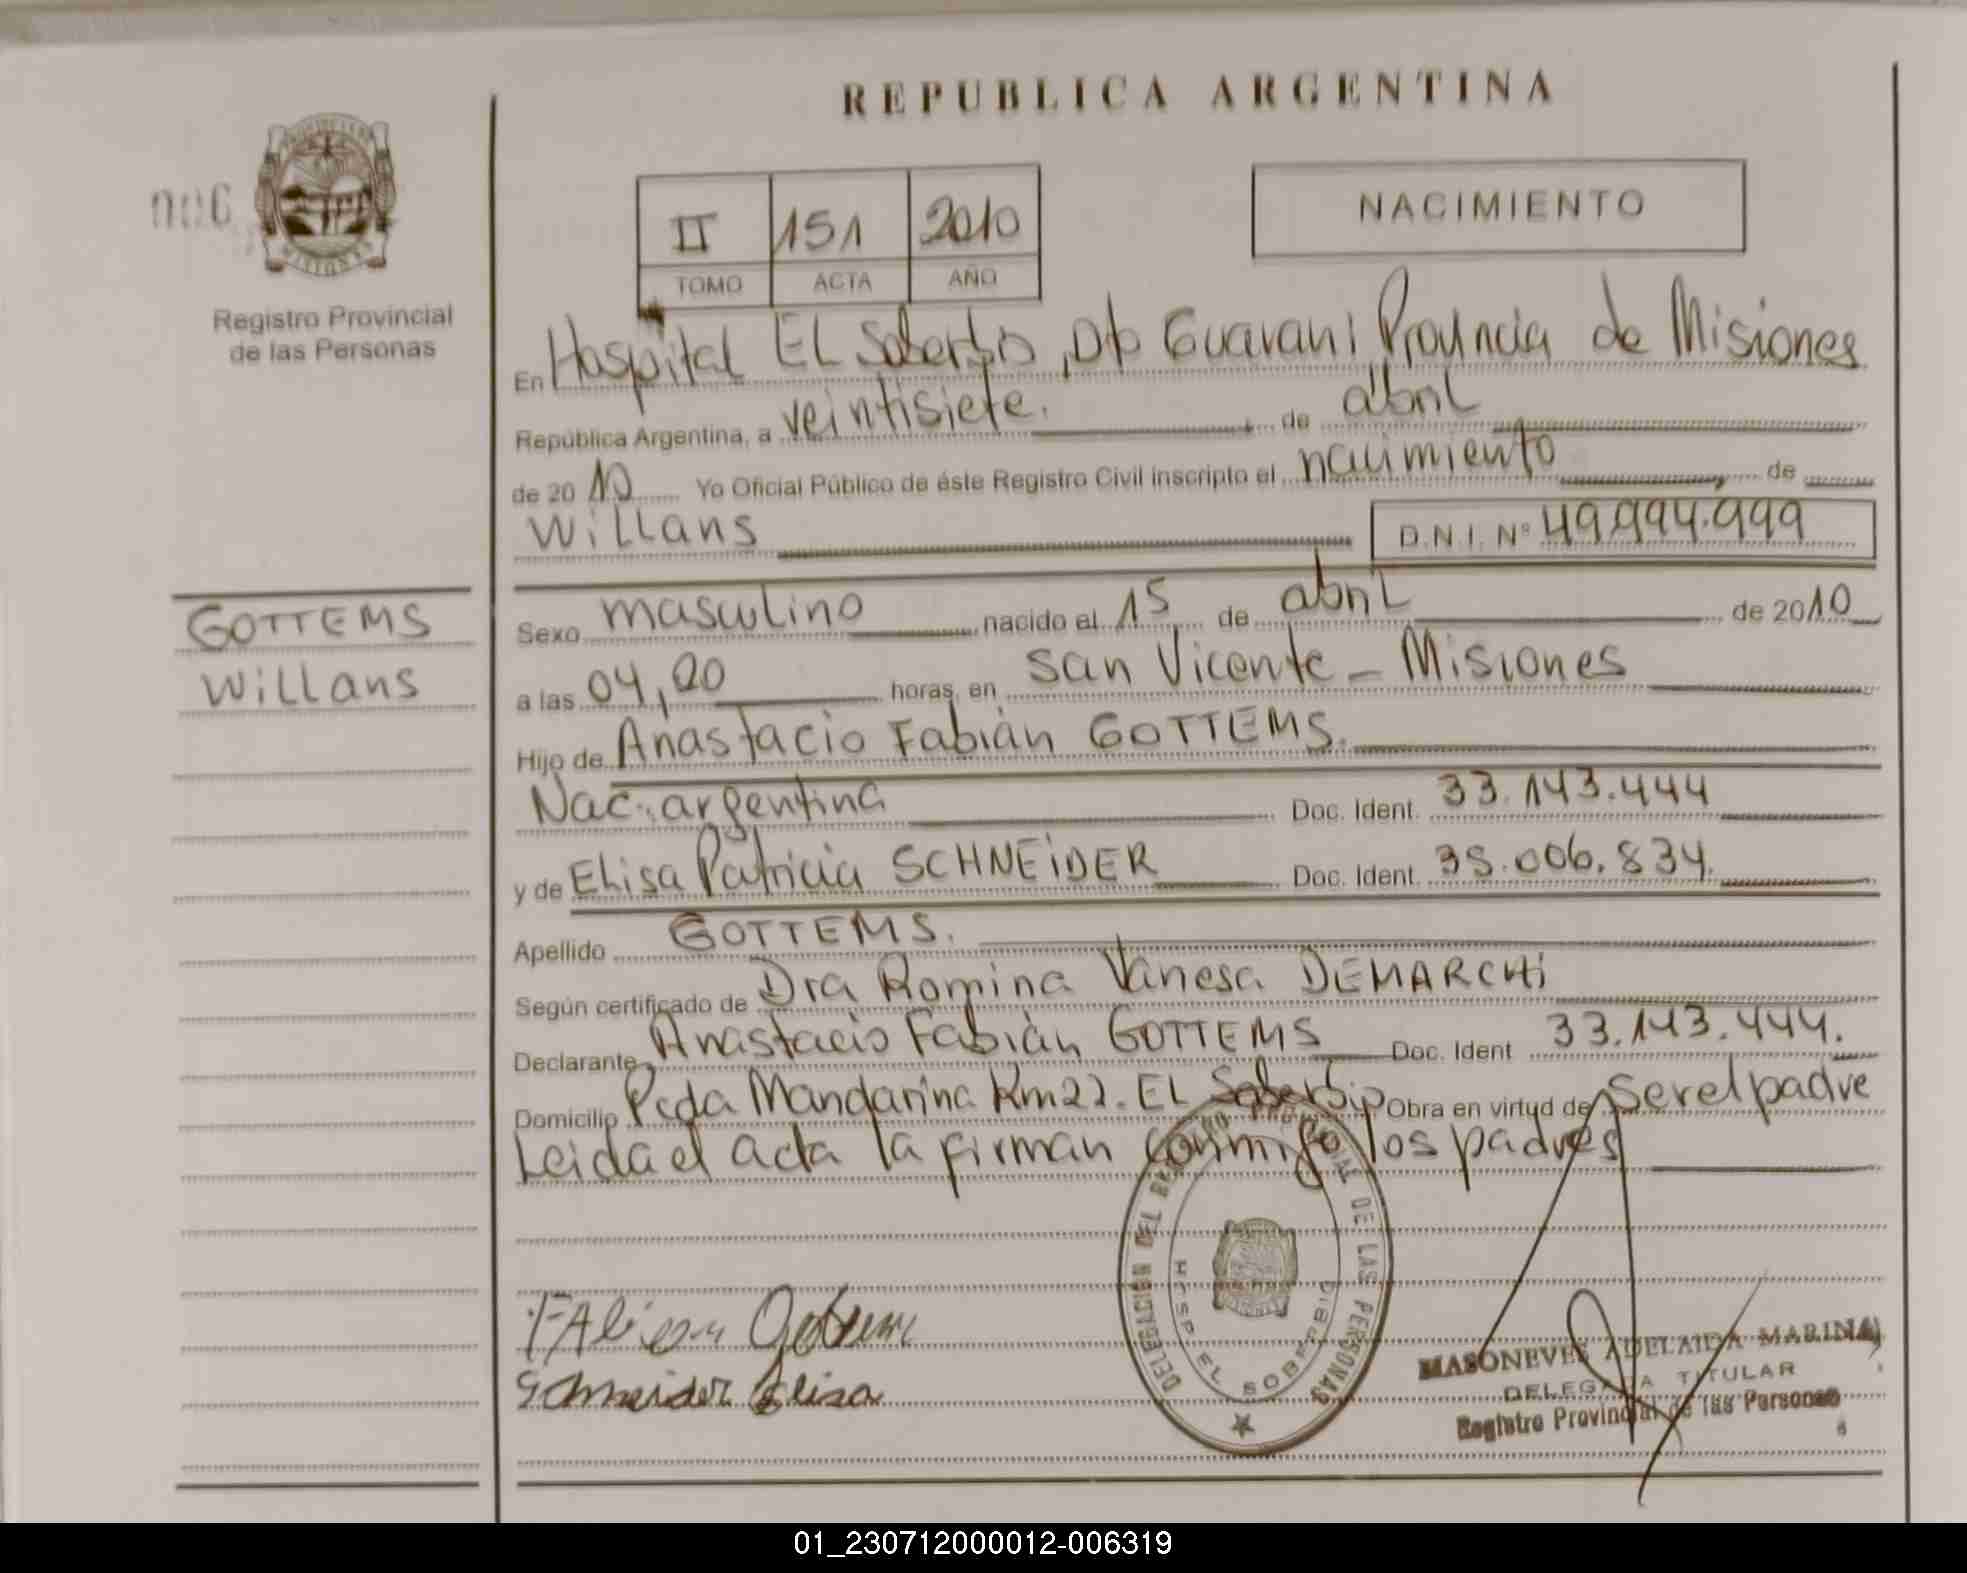 REPUBLICA ARGENTINA
006
MISIONES
Registro Provincial
de las Personas
II 151 2010
TOMO ACTA AÑO
NACIMIENTO
En Hospital EL Soberbio, Dto Guarani Provincia de Misiones
República Argentina, a veintisiete. de abril
de 2010 Yo Oficial Público de éste Registro Civil inscripto el nacimiento de
Willans D.N.I. Nº 49.994.999
GOTTEMS
Willans
Sexo masculino nacido el 15 de abril de 2010
a las 04,20 horas, en San Vicente - Misiones
Hijo de Anastacio Fabián GOTTEMS.
Nac. argentina Doc. Ident. 33.143.444
y de Elisa Patricia SCHNEIDER Doc. Ident. 35.006.834.
Apellido GOTTEMS.
Según certificado de Dra Romina Vanesa DEMARCHI
Declarante Anastacio Fabián GOTTEMS Doc. Ident 33.143.444.
Domicilio Pcda Mandarina Km22. EL Soberbio Obra en virtud de ser el padre
Leida el acta la firman conmigo los padres
DELEGACIÓN DEL REGISTRO PROVINCIAL DE LAS PERSONAS
HOSP. EL SOBERBIO
Fabian Gottems
Schneider Elisa
MASONEVES ADELAIDA MARINA
DELEGADA TITULAR
Registro Provincial de las Personas
01_230712000012-006319